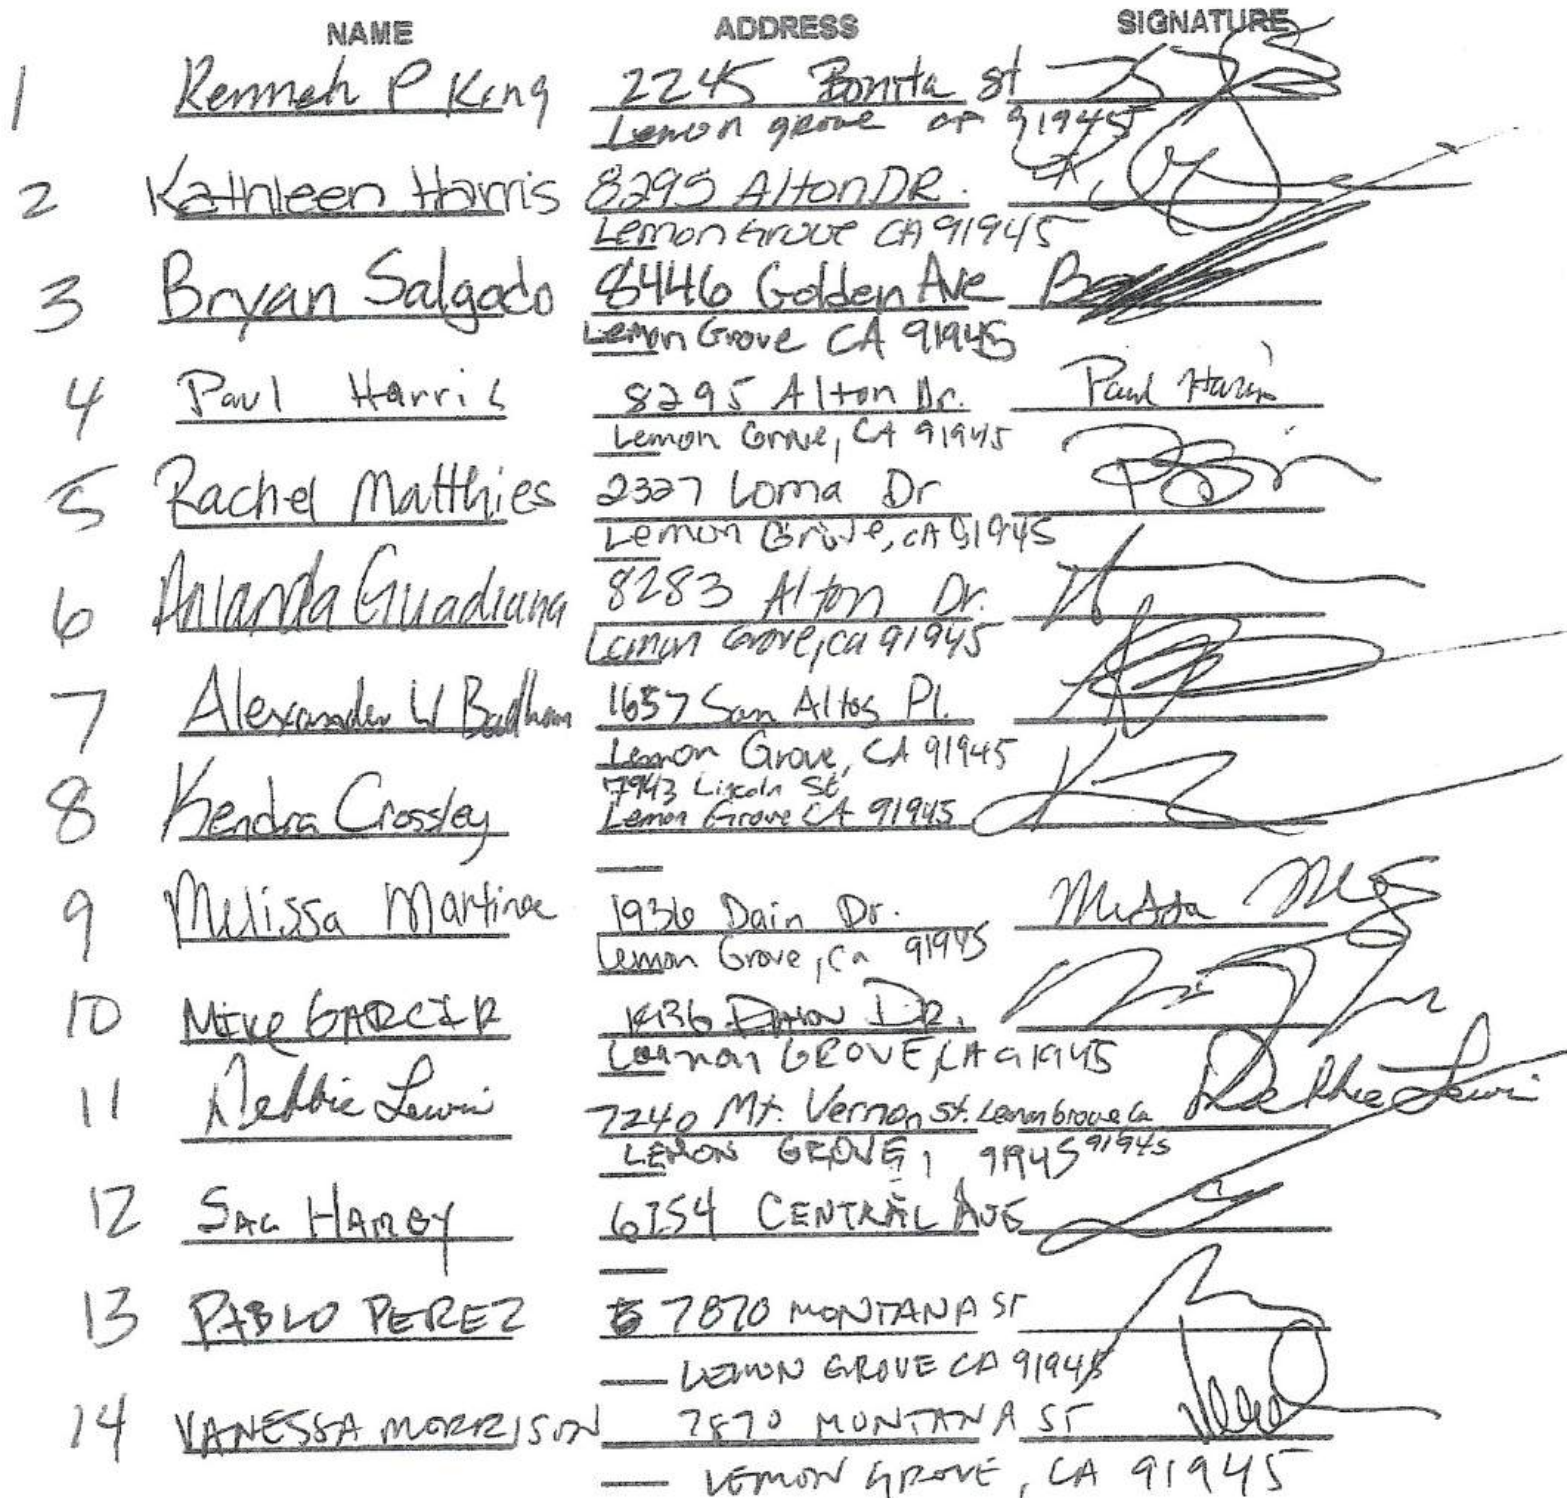 NAME ADDRESS SIGNATURE
1 Kenneh P King 2245 Bonita st
Lemon grove 91945
2 Kathleen Harris 8295 Alton DR.
Lemon Grove CA 91945
3 Bryan Salgado 8446 Golden Ave
Lemon Grove CA 91945
4 Paul Harris 8295 Alton Dr. Paul Harris
Lemon Grove, CA 91945
5 Rachel Matthies 2327 Loma Dr
Lemon Grove, CA 91945
6 Guadiana 8283 Alton Dr.
Lemon Grove, ca 91945
7 Alexander W Badham 1657 San Altos Pl.
Lemon Grove, CA 91945
7943 Lincoln St
8 Kendra Crossley Lemon Grove CA 91945
9 Melissa Martinez 1936 Dain Dr.
Lemon Grove, Ca 91945
10 Mike GARCIA Dain DR.
Lemon GROVE, CA 91945
11 Debbie Lewis 7240 Mt. Vernon St. Lemon Grove Ca Debbie Lewis
91945
LEMON GROVE, 91945
12 HAMBY CENTRAL AVE
13 PABLO PEREZ 7870 MONTANA ST
LEMON GROVE CA 91945
14 VANESSA MORRISON 7870 MONTANA ST
LEMON GROVE, CA 91945